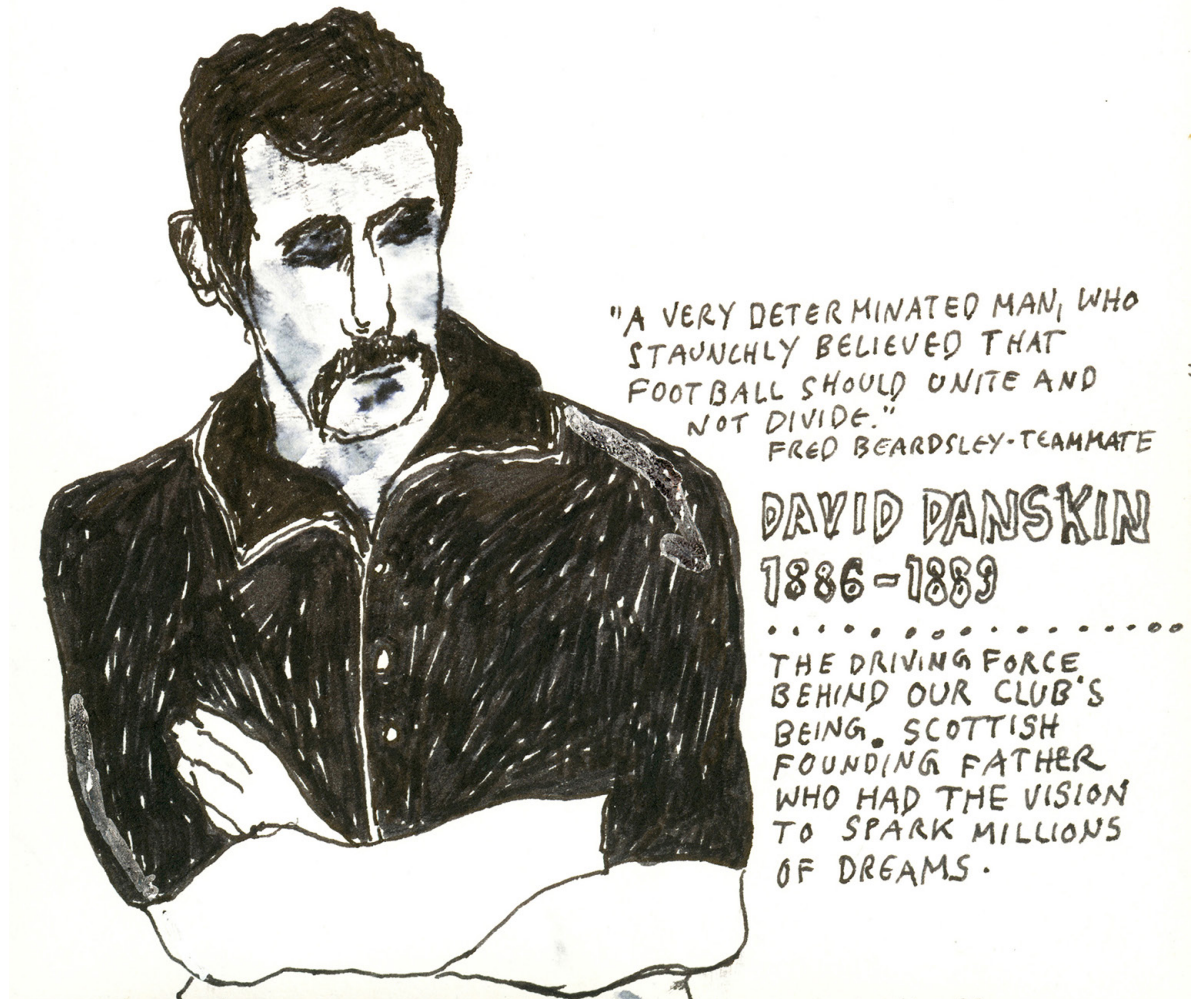 "A VERY DETERMINATED MAN, WHO
STAUNCHLY BELIEVED THAT
FOOTBALL SHOULD UNITE AND
NOT DIVIDE."
FRED BEARDSLEY-TEAMMATE
DAVID DANSKIN
1886-1889
THE DRIVING FORCE
BEHIND OUR CLUB'S
BEING. SCOTTISH
FOUNDING FATHER
WHO HAD THE VISION
TO SPARK MILLIONS
OF DREAMS.